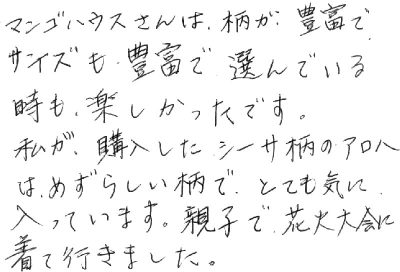 マンゴハウスさんは、柄が、豊富で
サイズも、豊富で、選んでいる
時も、楽しかったです。
私が、購入した シーサ柄のアロハ
は、めずらしい柄で、とても気に
入っています。親子で、花火大会に
着て行きました。